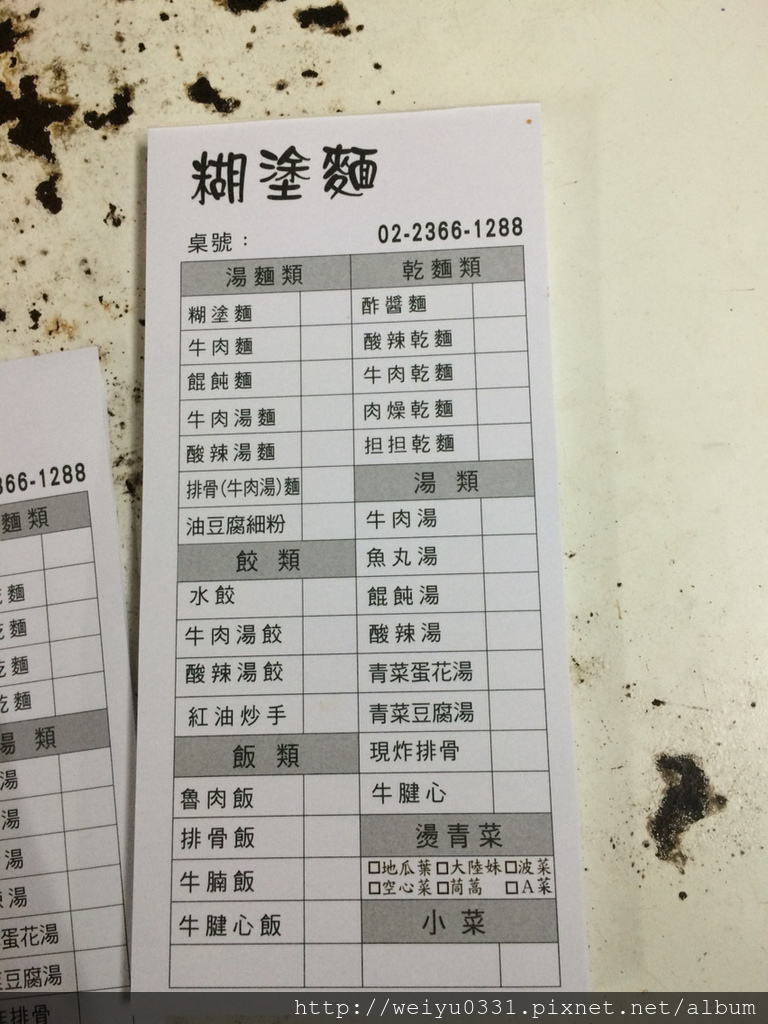 糊塗麵
桌號： 02-2366-1288
湯麵類
糊塗麵
牛肉麵
餛飩麵
牛肉湯麵
酸辣湯麵
排骨(牛肉湯)麵
油豆腐細粉
餃類
水餃
牛肉湯餃
酸辣湯餃
紅油炒手
飯類
魯肉飯
排骨飯
牛腩飯
牛腱心飯
乾麵類
酢醬麵
酸辣乾麵
牛肉乾麵
肉燥乾麵
担担乾麵
湯類
牛肉湯
魚丸湯
餛飩湯
酸辣湯
青菜蛋花湯
青菜豆腐湯
現炸排骨
牛腱心
燙青菜
□地瓜葉□大陸妹□波菜
□空心菜□茼蒿 □A菜
小菜
366-1288
麵類
麵
乾麵
乾麵
乾麵
湯類
湯
湯
湯
湯
蛋花湯
豆腐湯
炸排骨
http://weiyu0331.pixnet.net/album